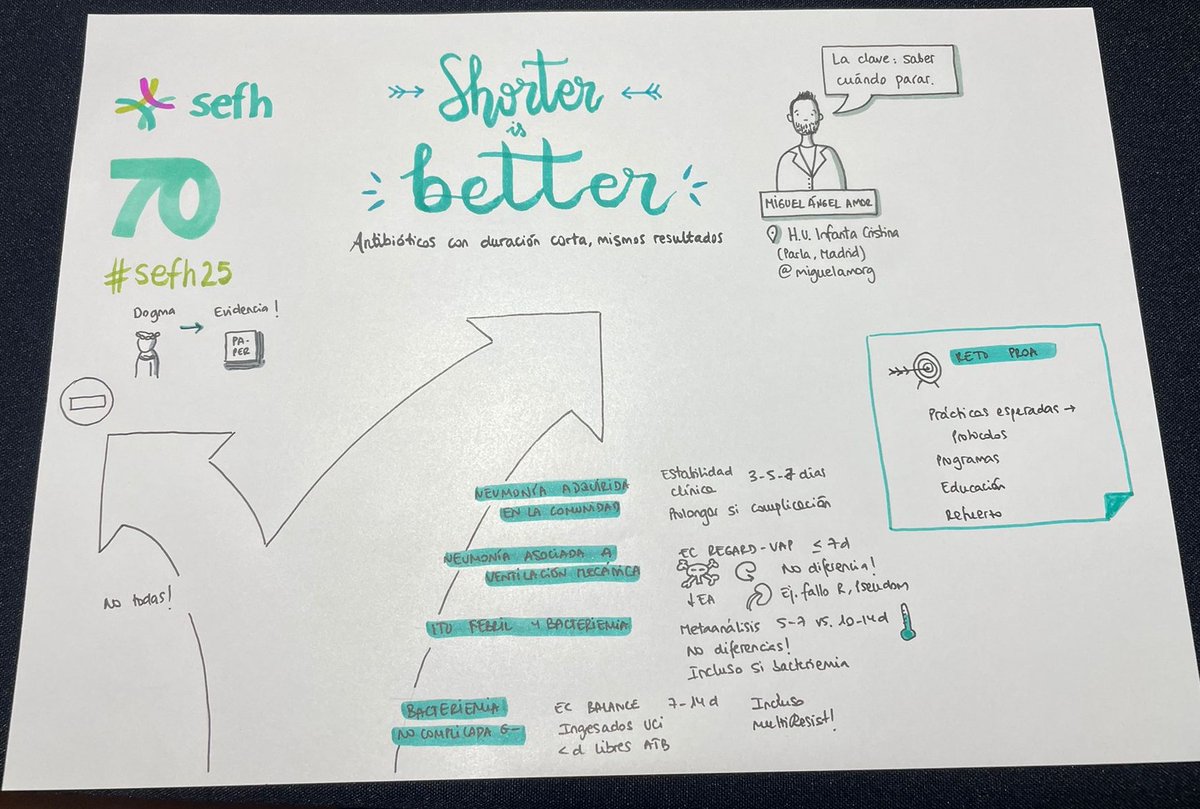 sefh
70
#sefh25
Shorter
is
better
Antibióticos con duración corta, mismos resultados
La clave: saber
cuándo parar.
MIGUEL ÁNGEL AMOR
H.U. Infanta Cristina
(Parla, Madrid)
@miguelamorg
Dogma
Evidencia!
PA-
PER
No todas!
NEUMONÍA ADQUIRIDA
EN LA COMUNIDAD
Estabilidad
clínica
3-5-7 días
Prolongar si complicación
NEUMONÍA ASOCIADA A
VENTILACIÓN MECÁNICA
EC REGARD-VAP ≤7d
No diferencia!
↓EA
Ej. fallo R, Pseudom
ITU FEBRIL Y BACTERIEMIA
Metaanálisis 5-7 vs. 10-14d
No diferencias!
Incluso si bacteriemia
BACTERIEMIA
NO COMPLICADA G-
EC BALANCE 7-14d
Ingesados UCI
<d libres ATB
Incluso
MultiResist!
RETO PROA
Prácticas esperadas →
Protocolos
Programas
Educación
Refuerzo